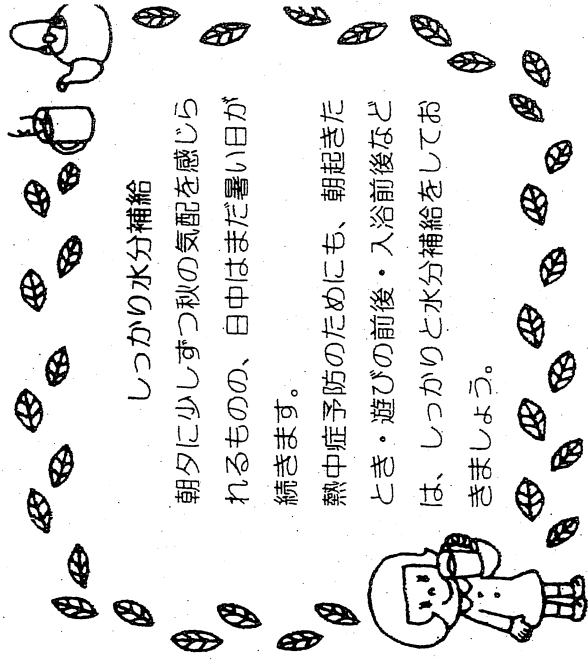 しっかり水分補給
朝夕に少しずつ秋の気配を感じら
れるものの、日中はまだ暑い日が
続きます。
熱中症予防のためにも、朝起きた
とき・遊びの前後・入浴前後など
は、しっかりと水分補給をしてお
きましょう。